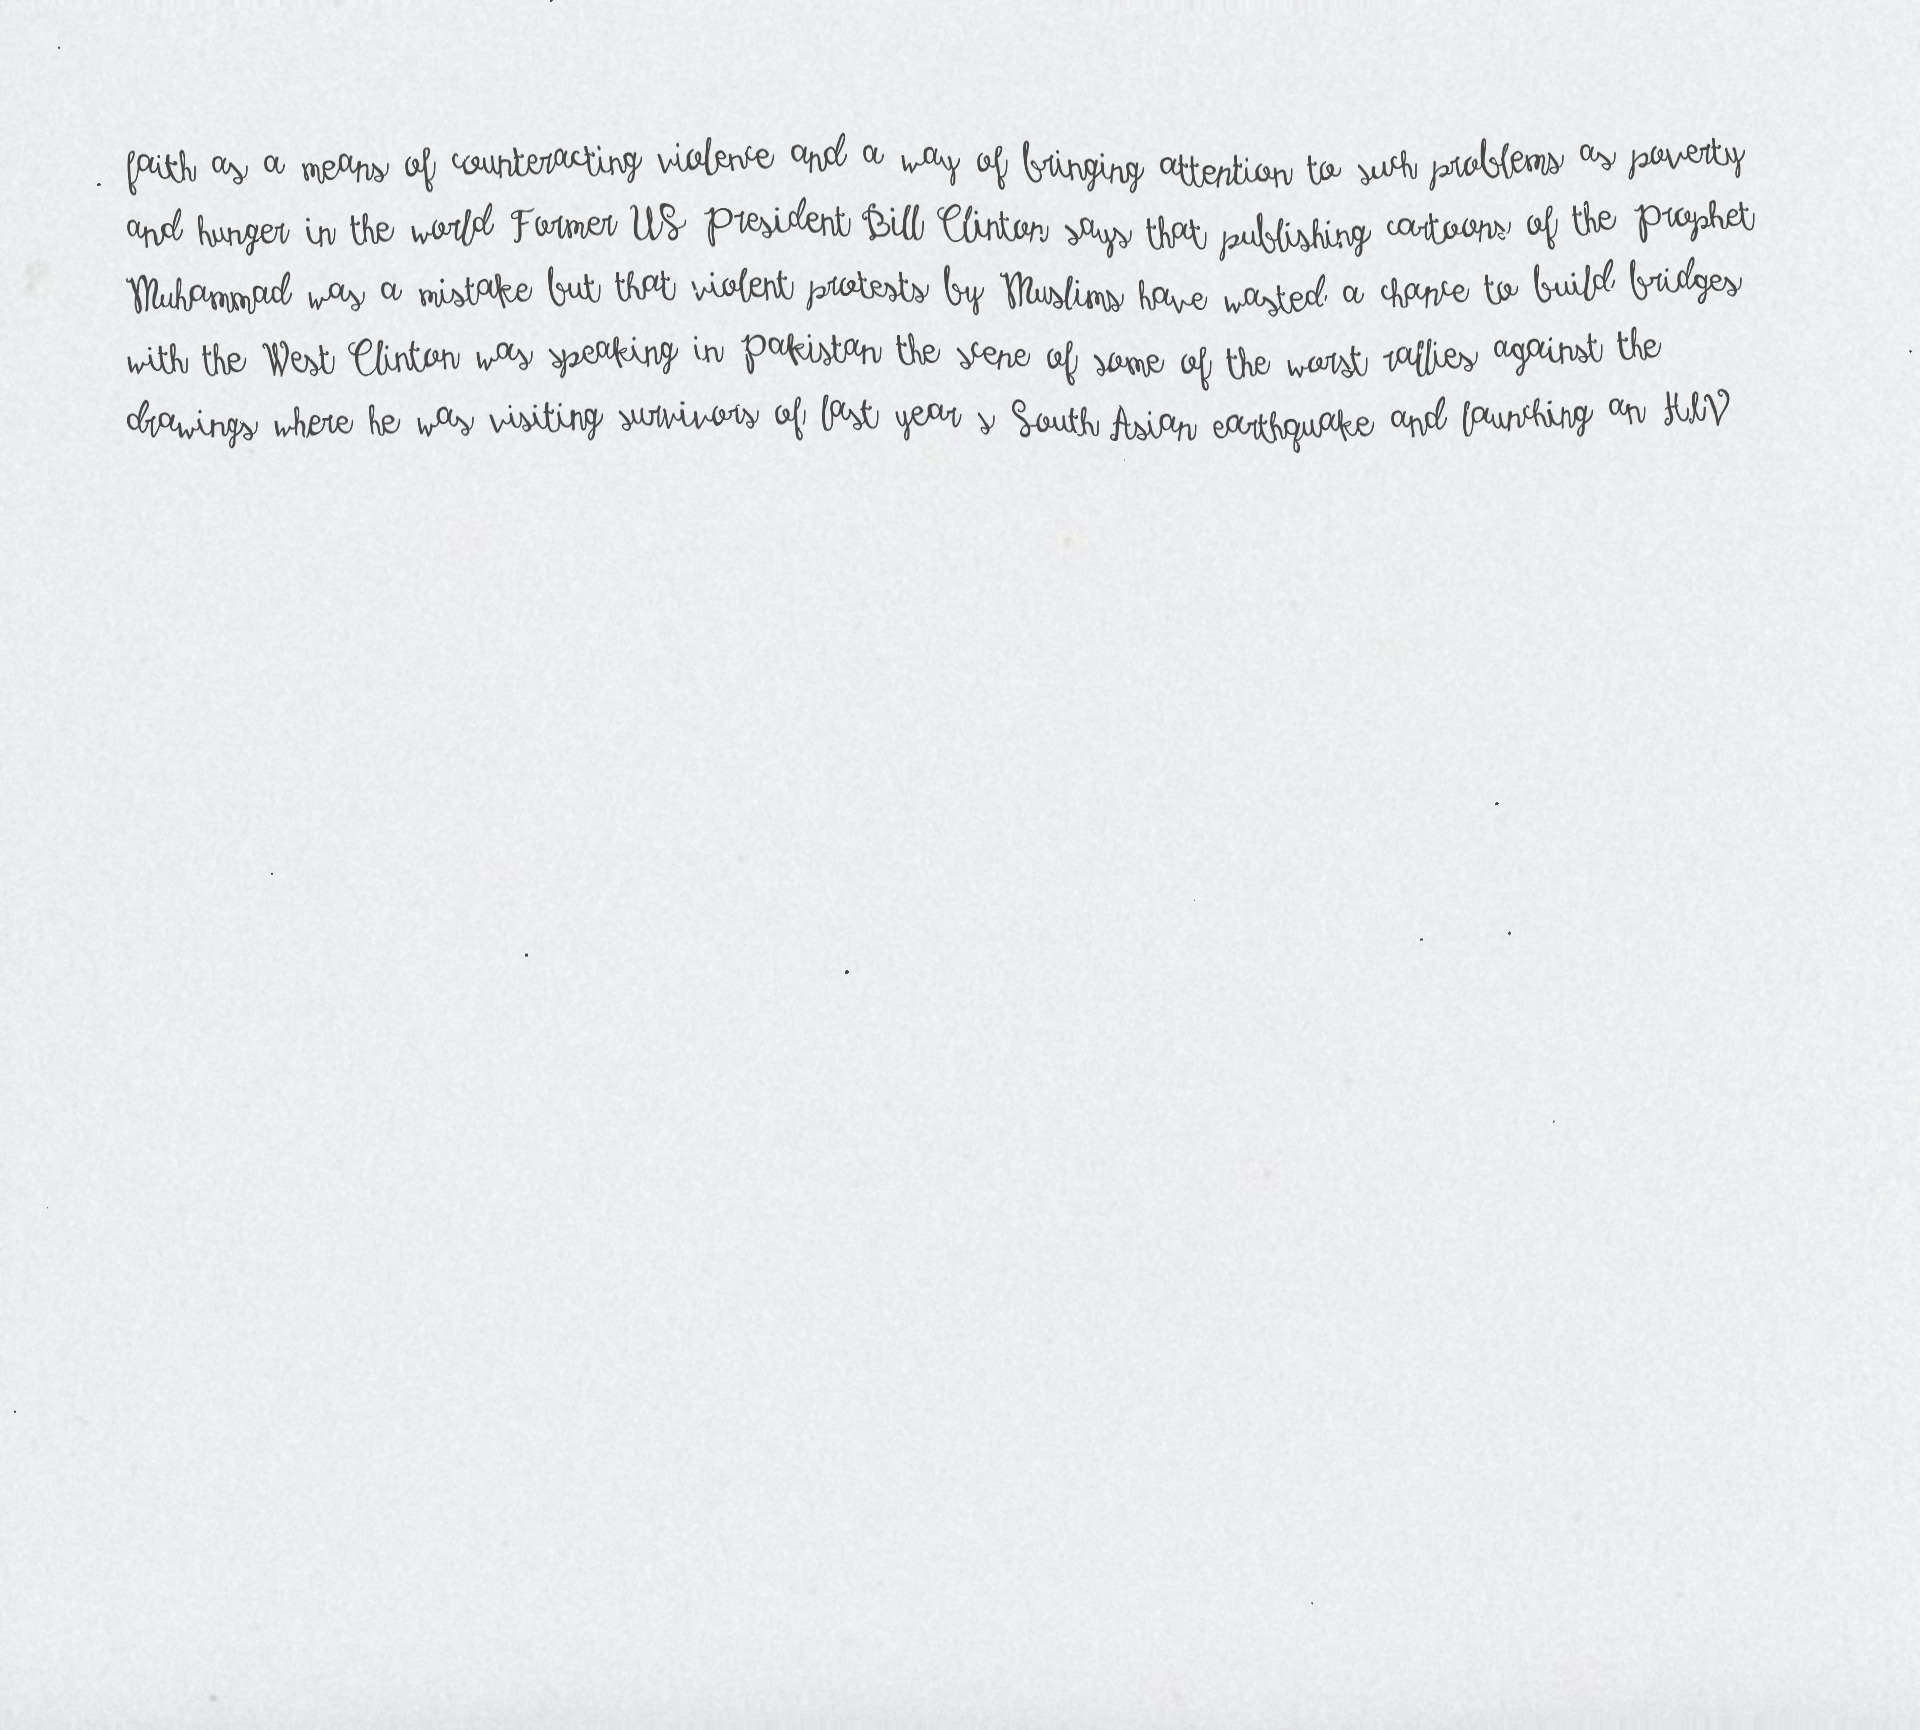 faith as a means of counteracting violence and a way of bringing attention to such problems as poverty
and hunger in the world Former US President Bill Clinton says that publishing cartoons of the Prophet
Muhammad was a mistake but that violent protests by Muslims have wasted a chance to build bridges
with the West Clinton was speaking in Pakistan the scene of some of the worst rallies against the
drawings where he was visiting survivors of last year s South Asian earthquake and launching an HIV